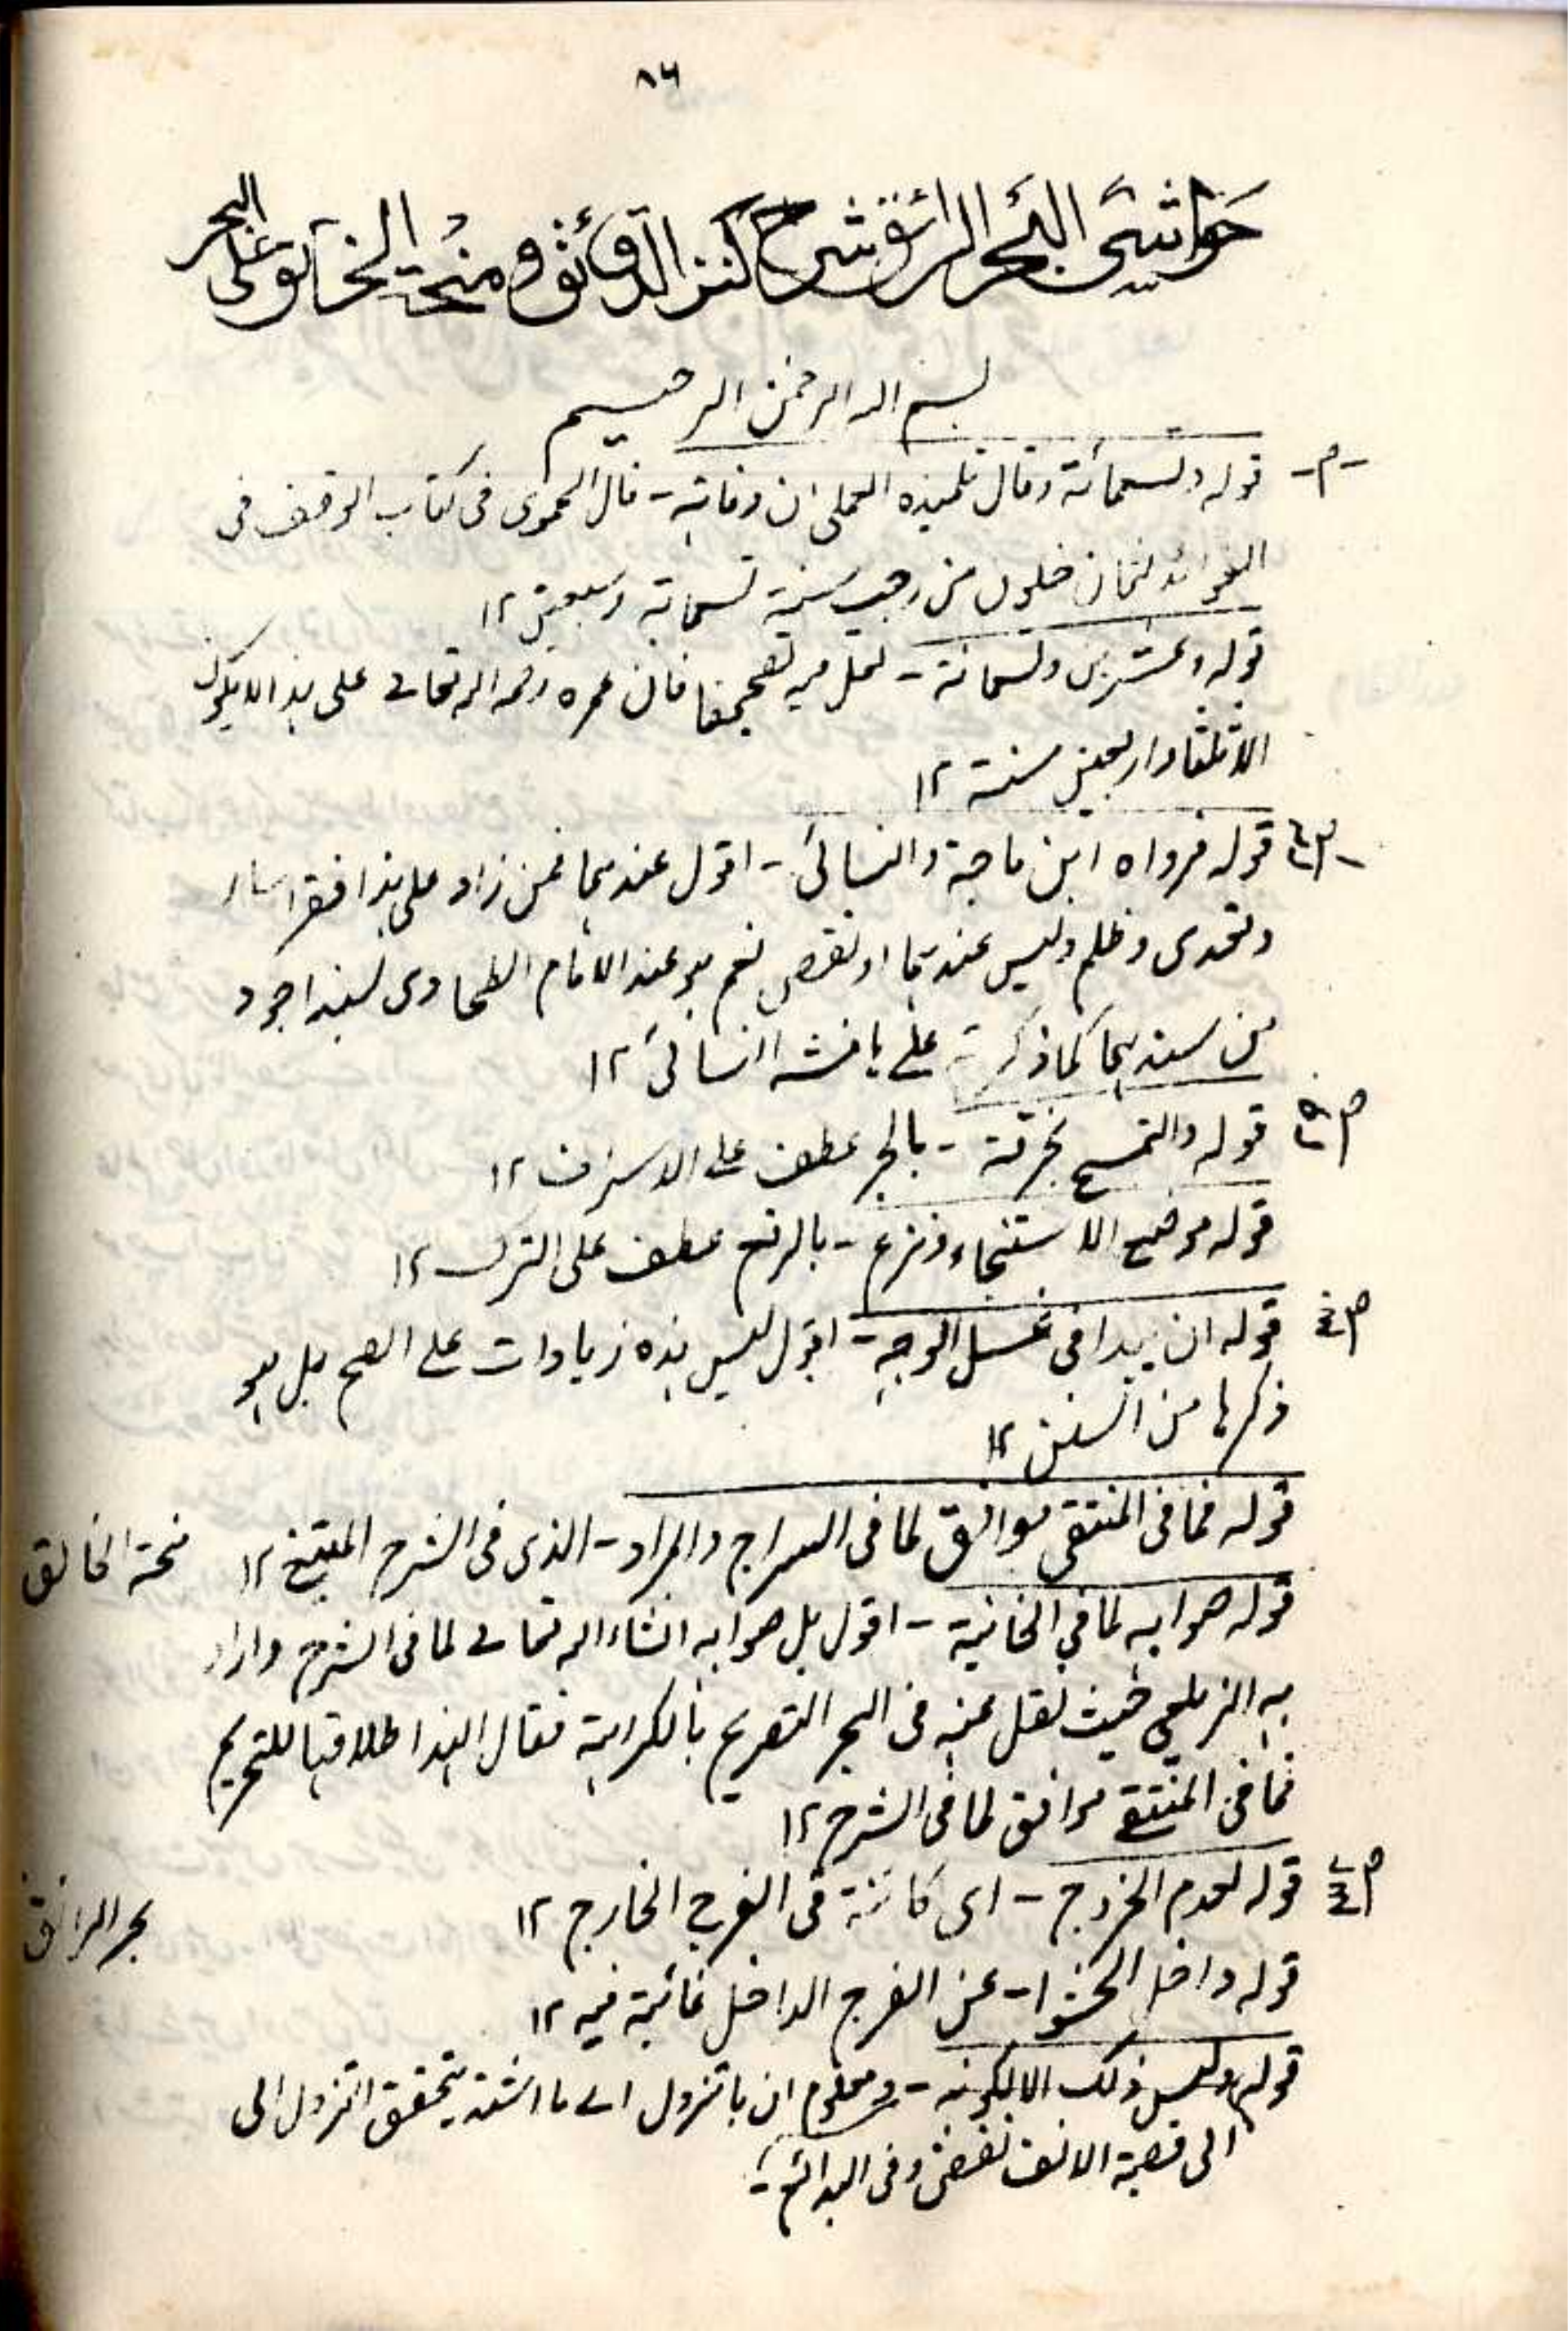 ٨٦
حواشی البحر الرائق شرح کنز الدقائق ومنحۃ الخالق علی البحر
بسم اللہ الرحمٰن الرحیم
قولہ وتسعمائة وقال تلمیذہ العلمی ان وفاتہ - قال الحموی فی کتاب الوقف فی
الفوائد لثمان خلون من رجب سنة تسعمایة وسبعین ١٢
قولہ وعشرین وتسعمائة - لعل فیہ تصحیفا فان عمرہ رحمہ اللہ تعالے علی ہذا لا یکون
الا ثلثا واربعین سنة ١٢
قولہ فرواہ ابن ماجة والنسائی - اقول عندہما فمن زاد علی ہذا فقد اساء
وتعدی وظلم ولیس عندہما او نقص نعم ہو عند الامام الطحاوی بسند اجود
من سندہما کما ذکرتہ علے ہامش النسائی ١٢
ص ٢٩ قولہ والتمسح بخرقة - بالجر عطف علی الاسراف ١٢
قولہ موضع الاستنجاء ونزع - بالرفع عطف علی الترک ١٢
قولہ ان یبدا فی غسل الوجہ - اقول لیس ہذہ زیادات علے الفتح بل ہو
ذکرہا من السنن ١٢
قولہ فما فی المنتقی موافق لما فی السراج والمراد - الذی فی الشرح المنتقی ١٢ منحة الخالق
قولہ صوابہ لما فی الخانیة - اقول بل صوابہ انشاء اللہ تعالے لما فی الشرح واراد
بہ الزیلعی حیث نقل عنہ فی البحر التصریح بالکراہة فقال ایضا اطلاقہا للتحریم
فما فی المنتقے موافق لما فی الشرح ١٢
قولہ لعدم الخروج - ای کائنة فی الفرج الخارج ١٢ بحر الرائق
قولہ داخل الحشوا - عن الفرج الداخل غائبة فیہ ١٢
قولہ ولیس ذلک الا لکونہ - ومعلوم ان بالنزول الے ما اشتد یتحقق النزول الی
الی قصبة الانف نقض وفی البدائع -